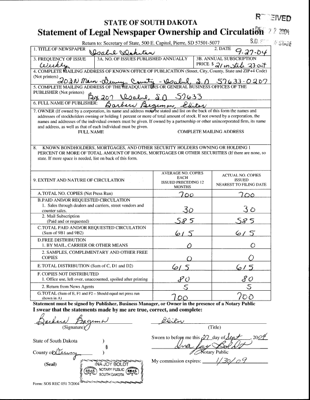 STATE OF SOUTH DAKOTA
Statement of Legal Newspaper Ownership and Circulation
Return to: Secretary of State, 500 E. Capitol, Pierre, SD 57501-5077
1. TITLE OF NEWSPAPER
2. DATE
9-27-04
3. FREQUENCY OF ISSUE
Weekly
3A. NO. OF ISSUES PUBLISHED ANNUALLY
3B. ANNUAL SUBSCRIPTION
PRICE $
4. COMPLETE MAILING ADDRESS OF KNOWN OFFICE OF PUBLICATION (Street, City, County, State and ZIP+4 Code)
(Not printers)
57633-0207
5. COMPLETE MAILING ADDRESS OF THE HEADQUARTERS OR GENERAL BUSINESS OFFICES OF THE
PUBLISHERS (Not printers)
Box 207 Isabel, S.D. 57633
6. FULL NAME OF PUBLISHER:
Barbara Begeman, Editor
7. OWNER (If owned by a corporation, its name and address must be stated and list on the back of this form the names and
addresses of stockholders owning or holding 1 percent or more of total amount of stock. If not owned by a corporation, the
names and addresses of the individual owners must be given. If owned by a partnership or other unincorporated firm, its name
and address, as well as that of each individual must be given.
FULL NAME
COMPLETE MAILING ADDRESS
8. KNOWN BONDHOLDERS, MORTGAGES, AND OTHER SECURITY HOLDERS OWNING OR HOLDING 1
PERCENT OR MORE OF TOTAL AMOUNT OF BONDS, MORTGAGES OR OTHER SECURITIES (If there are none, so
state. If more space is needed, list on back of this form.
9. EXTENT AND NATURE OF CIRCULATION
AVERAGE NO. COPIES
EACH
ISSUED PRECEDING 12
MONTHS
ACTUAL NO. COPIES
ISSUED
NEAREST TO FILING DATE
A. TOTAL NO. COPIES (Net Press Run)
700
700
B. PAID AND/OR REQUESTED CIRCULATION
1. Sales through dealers and carriers, street vendors and
counter sales.
30
30
2. Mail Subscription
(Paid and or requested)
585
585
C. TOTAL PAID AND/OR REQUESTED CIRCULATION
(Sum of 9B1 and 9B2)
615
615
D. FREE DISTRIBUTION
1. BY MAIL, CARRIER OR OTHER MEANS
0
0
2. SAMPLES, COMPLIMENTARY AND OTHER FREE
COPIES
0
0
E. TOTAL DISTRIBUTION (Sum of C, D1 and D2)
615
615
F. COPIES NOT DISTRIBUTED
1. Office use, left over, unaccounted, spoiled after printing
80
80
2. Return from News Agents
5
5
G. TOTAL (Sum of E, F1 and F2 - Should equal net press run
shown in A)
700
700
Statement must be signed by Publisher, Business Manager, or Owner in the presence of a Notary Public
I swear that the statements made by me are true, correct, and complete:
Barbara Begeman
Editor
(Signature)
(Title)
State of South Dakota )
Sworn to before me this 27 day of Sept 2004
County of Dewey )
Notary Public
(Seal)
INA JOY BOLDT
NOTARY PUBLIC
SOUTH DAKOTA
SEAL
My commission expires: 1/30/09